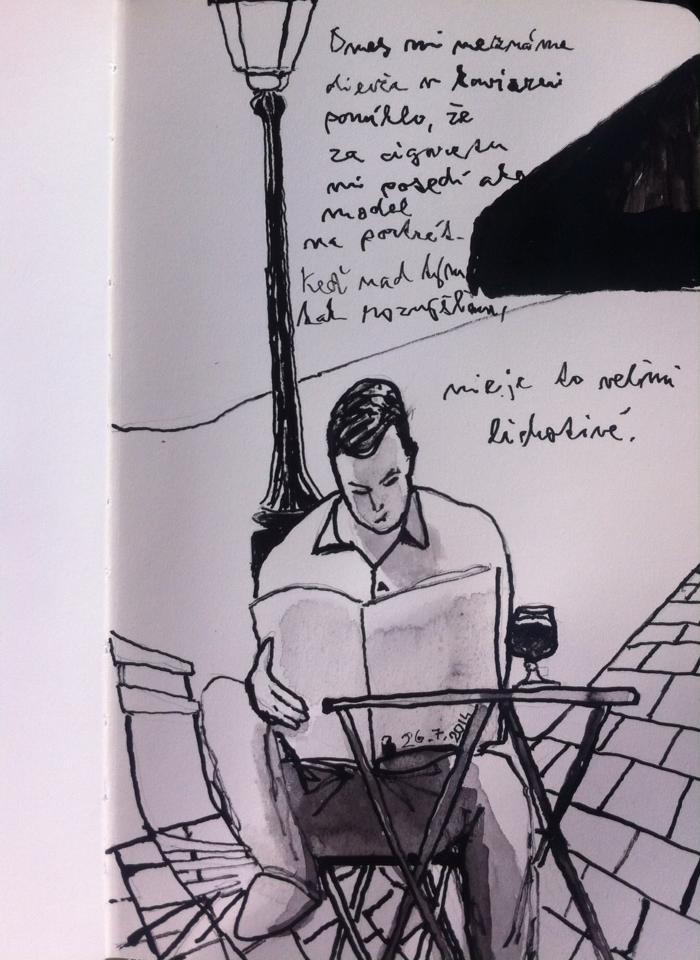 Dnes mi neznáme
dievča v kaviarni
ponúklo, že
za cigaretu
mi posedí ako
model
na portrét.
Keď nad tým
tak rozmýšľam,
nie je to veľmi
lichotivé.
26.7.2014